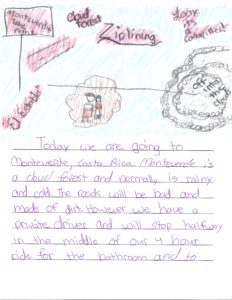 Monteverde
night
cloud
forest
Ziplining
look
it's a
off
into
the
Today we are going to
Monteverde, Costa Rica. Monteverde is
a cloud forest and normally is rainy
and cold. The roads will be bad and
made of dirt. However we have a
private driver and will stop halfway
in the middle of our 4 hour
ride for the bathroom and to